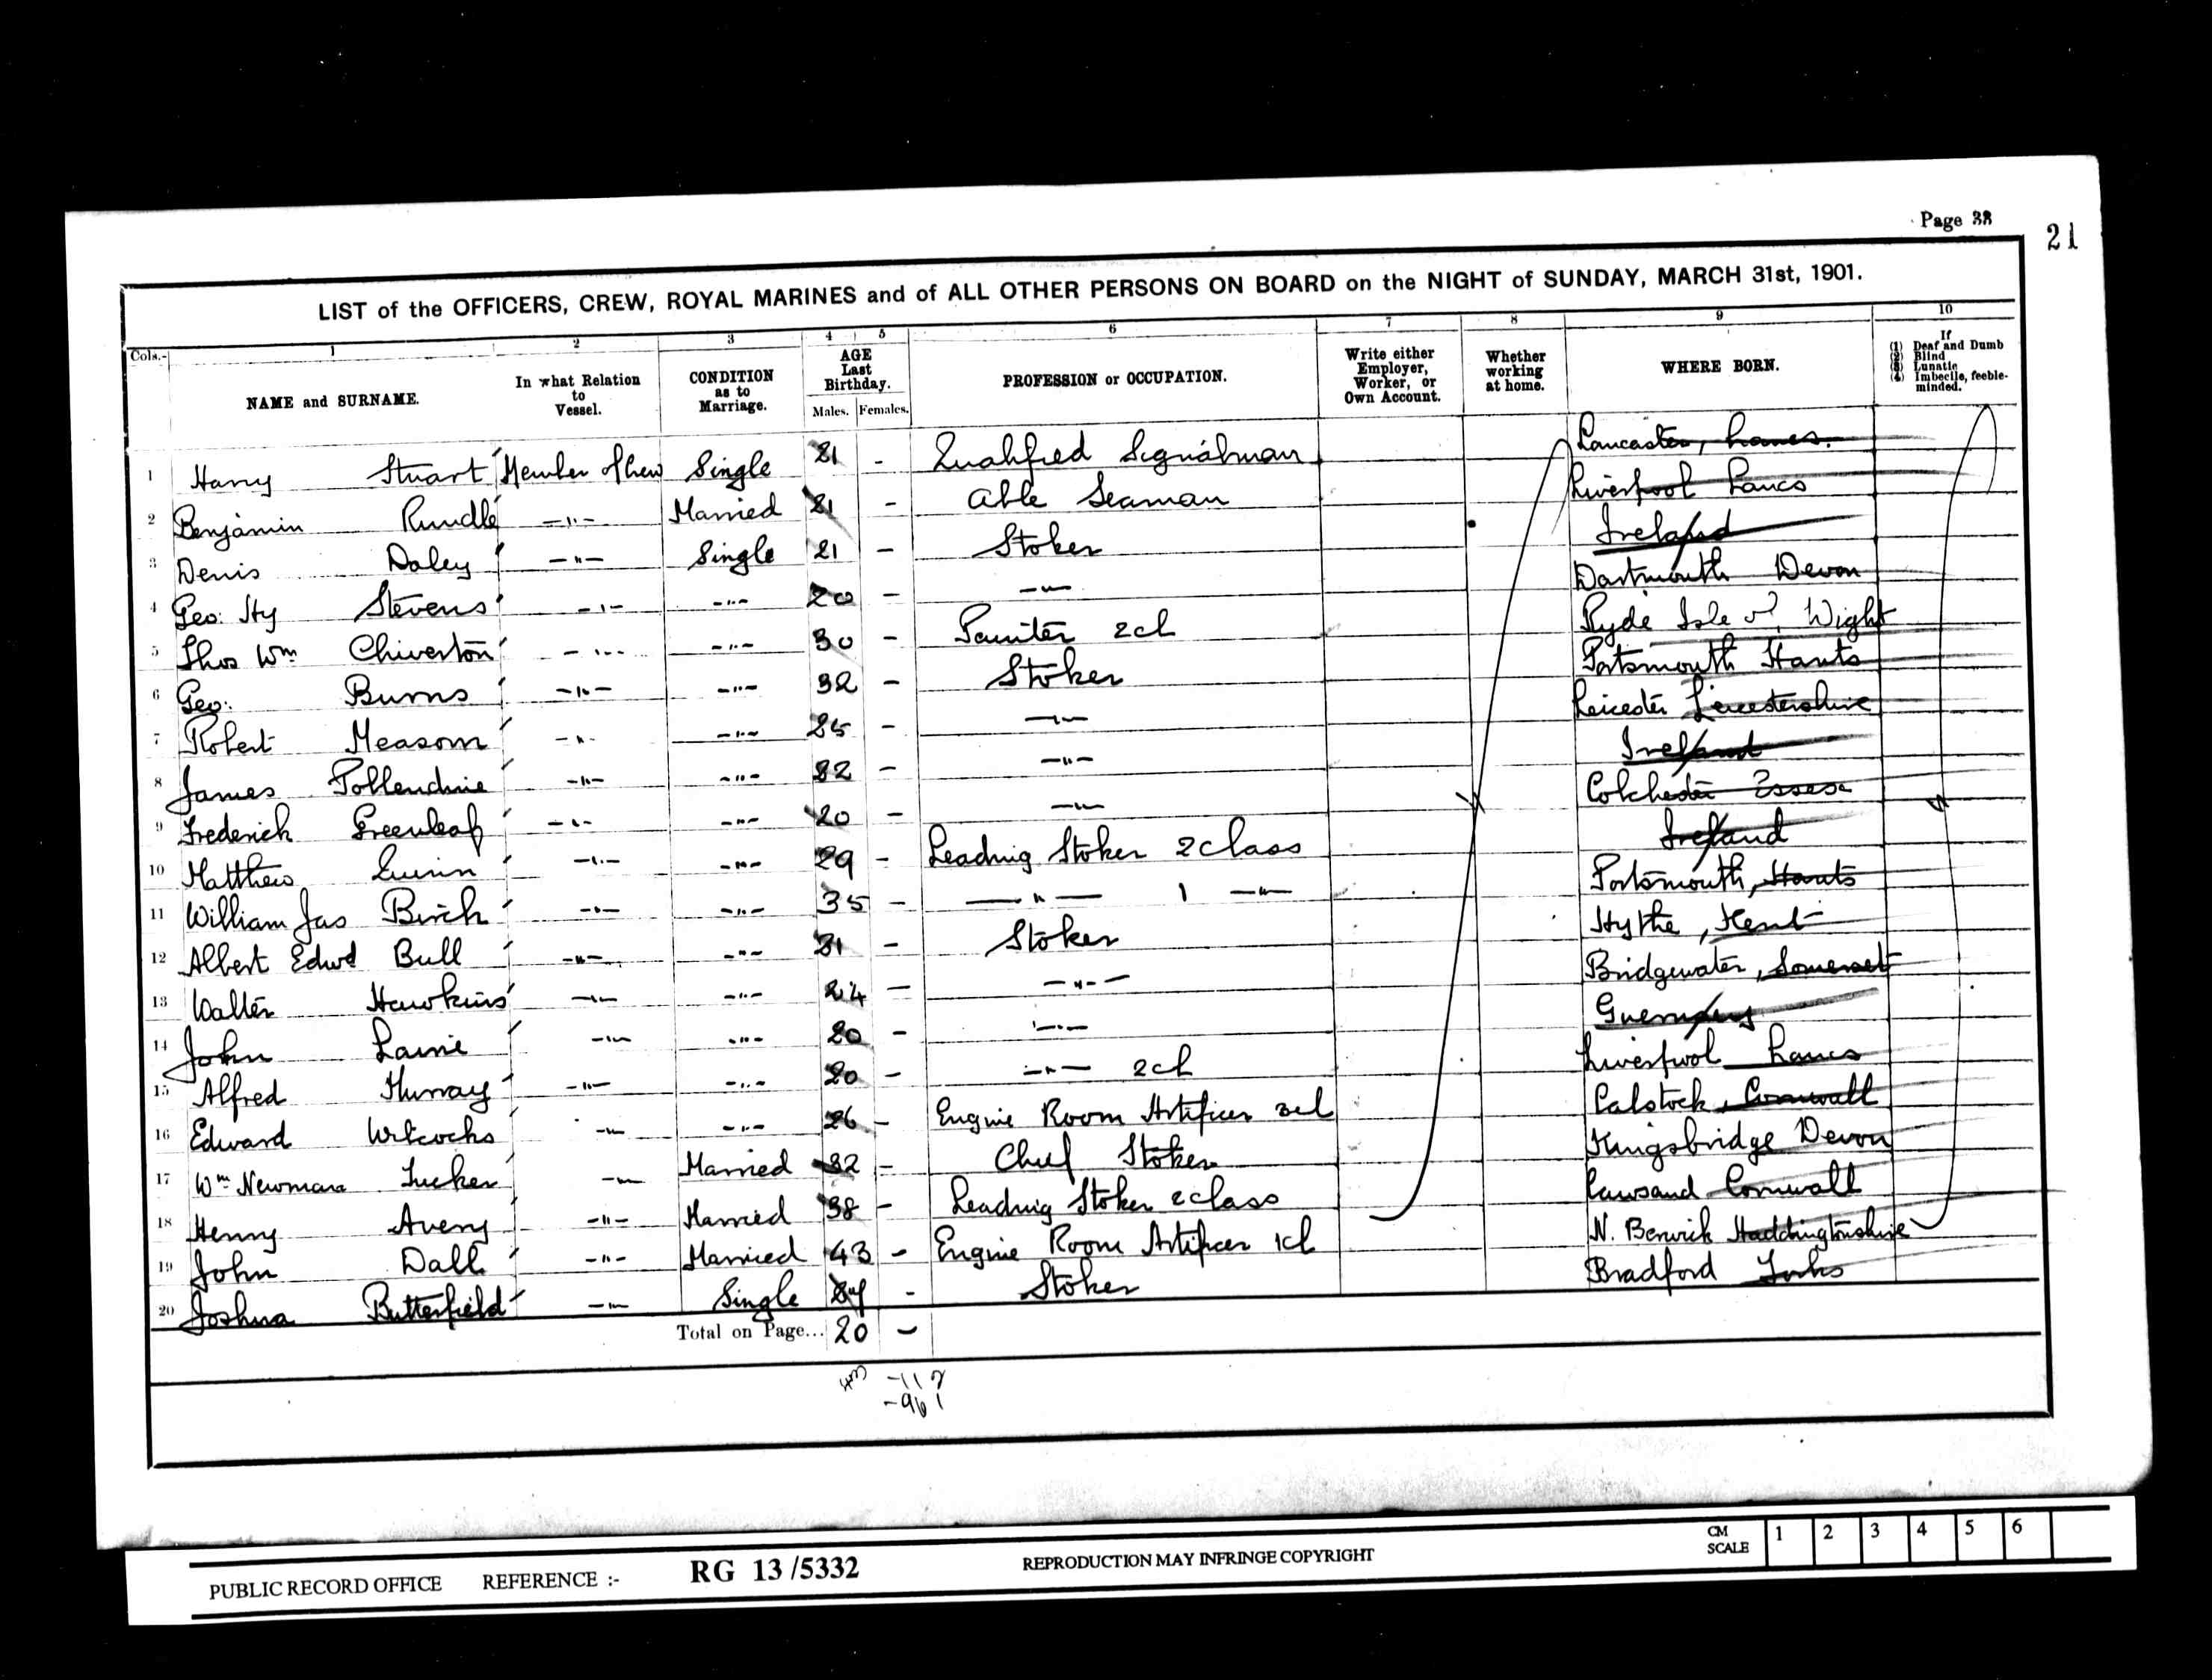 Page 38
21
LIST of the OFFICERS, CREW, ROYAL MARINES and of ALL OTHER PERSONS ON BOARD on the NIGHT of SUNDAY, MARCH 31st, 1901.
Cols.- 1 2 3 4 5 6 7 8 9 10
NAME and SURNAME. In what Relation to Vessel. CONDITION as to Marriage. AGE Last Birthday. Males. Females. PROFESSION or OCCUPATION. Write either Employer, Worker, or Own Account. Whether working at home. WHERE BORN. If (1) Deaf and Dumb (2) Blind (3) Lunatic (4) Imbecile, feeble-minded.
1 Harry Stuart Member of Crew Single 21 - Qualified Signalman Lancaster, Lancs.
2 Benjamin Rundle -"- Married 21 - Able Seaman Liverpool Lancs
3 Denis Daley -"- Single 21 - Stoker Ireland
4 Geo: Hy Stevens -"- -"- 20 - -"- Dartmouth Devon
5 Thos Wm Chiverton -"- -"- 30 - Painter 2cl Ryde Isle of Wight
6 Geo: Burns -"- -"- 32 - Stoker Portsmouth Hants
7 Robert Measom -"- -"- 25 - -"- Leicester Leicestershire
8 James Pollendine -"- -"- 22 - -"- Ireland
9 Frederick Greenleaf -"- -"- 20 - -"- Colchester Essex
10 Matthew Quinn -"- -"- 29 - Leading Stoker 2 class Ireland
11 William Jas Birch -"- -"- 35 - -"- 1 -"- Portsmouth, Hants
12 Albert Edwd Bull -"- -"- 21 - Stoker Hythe, Kent
13 Walter Hawkins -"- -"- 24 - -"- Bridgewater, Somerset
14 John Laine -"- -"- 20 - -"- Guernsey
15 Alfred Murray -"- -"- 20 - -"- 2cl Liverpool Lancs
16 Edward Wilcocks -"- -"- 26 - Engine Room Artificer 3cl Calstock, Cornwall
17 Wm Newman Tucker -"- Married 32 - Chief Stoker Kingsbridge Devon
18 Henry Avery -"- Married 38 - Leading Stoker 2 class Cawsand Cornwall
19 John Dall -"- Married 43 - Engine Room Artificer 1cl N. Berwick Haddingtonshire
20 Joshua Butterfield -"- Single 24 - Stoker Bradford Yorks
Total on Page... 20 -
PUBLIC RECORD OFFICE REFERENCE :- RG 13/5332 REPRODUCTION MAY INFRINGE COPYRIGHT CM SCALE 1 2 3 4 5 6